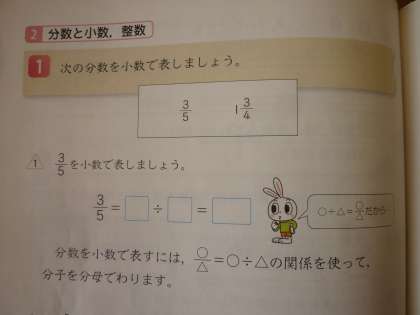 2 分数と小数，整数
1 次の分数を小数で表しましょう。
3/5 1 3/4
1 3/5を小数で表しましょう。
3/5 = □ ÷ □ = □
○÷△=○/△だから…
分数を小数で表すには，○/△=○÷△の関係を使って，
分子を分母でわります。